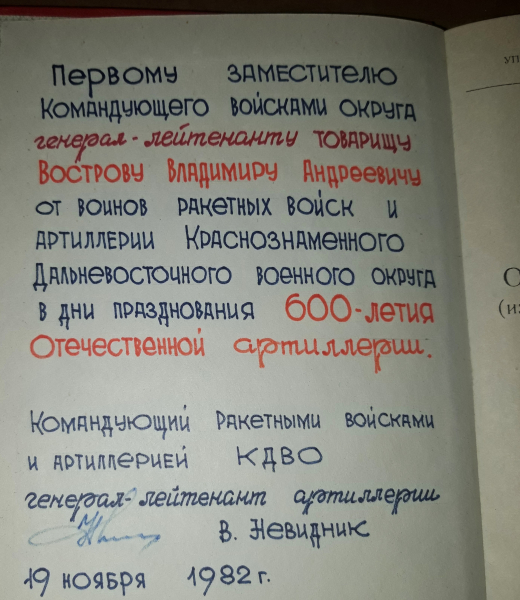 Первому заместителю
Командующего войсками округа
генерал-лейтенанту товарищу
Вострову Владимиру Андреевичу
от воинов ракетных войск и
артиллерии Краснознаменного
Дальневосточного военного округа
в дни празднования 600-летия
Отечественной артиллерии.
Командующий ракетными войсками
и артиллерией КДВО
генерал-лейтенант артиллерии
В. Невидник
19 ноября 1982 г.